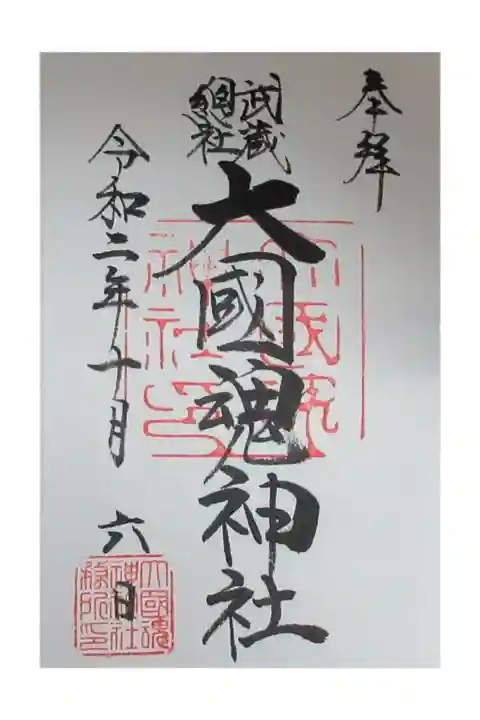 奉拝
武蔵
總社
大國魂神社
令和二年十月六日
大國魂
神社印
大國魂
神社
務所印